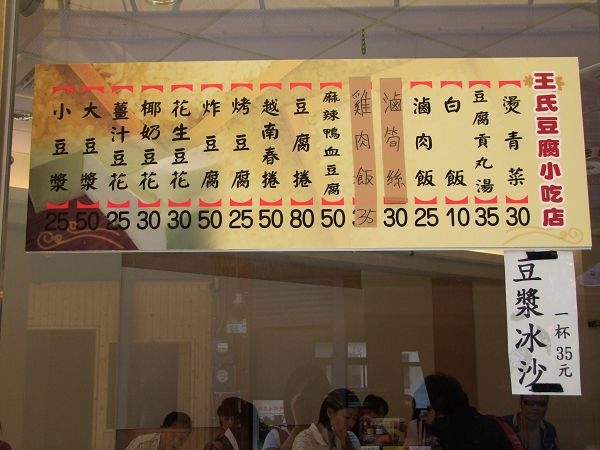 王氏豆腐小吃店
燙青菜 30
豆腐貢丸湯 35
白飯 10
滷肉飯 25
滷筍絲 30
雞肉飯 35
麻辣鴨血豆腐 50
豆腐捲 80
越南春捲 50
烤豆腐 25
炸豆腐 50
花生豆花 30
椰奶豆花 30
薑汁豆花 25
大豆漿 50
小豆漿 25
豆漿冰沙
一杯35元